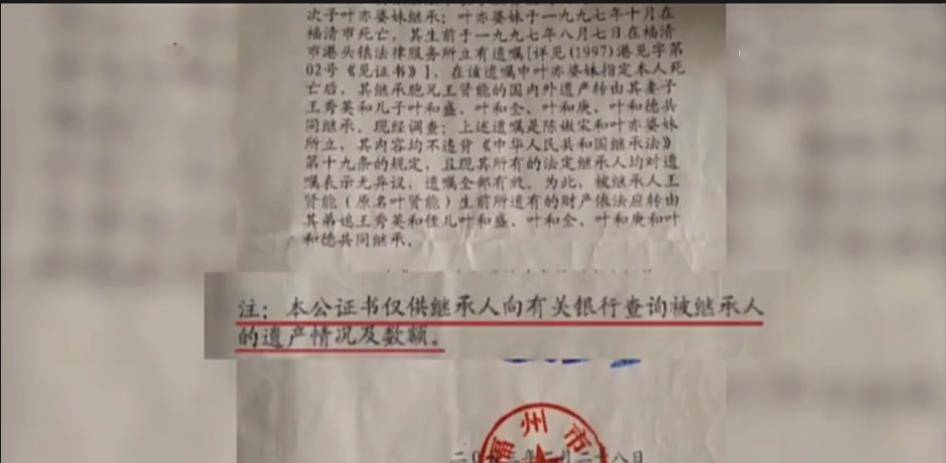 次子叶亦婆妹继承；叶亦婆妹于一九九七年十月在
福清市死亡，其生前于一九九七年八月七日在福清
市港头镇法律服务所立有遗嘱[详见(1997)港见字第
02号《见证书》]，在该遗嘱中叶亦婆妹指定本人死
亡后，其继承胞兄王贤能的国内外遗产转由其妻子
王秀英和儿子叶和盛、叶和全、叶和庚、叶和德共
同继承。现经调查：上述遗嘱是陈嫩宋和叶亦婆妹
所立，其内容均不违背《中华人民共和国继承法》
第十九条的规定，且现其所有的法定继承人均对遗
嘱表示无异议，遗嘱全部有效。为此，被继承人王
贤能（原名叶贤能）生前所遗有的财产依法应转由
其弟媳王秀英和侄儿叶和盛、叶和全、叶和庚和叶
和德共同继承。
注：本公证书仅供继承人向有关银行查询被继承人
的遗产情况及数额。
州市
月二十八日